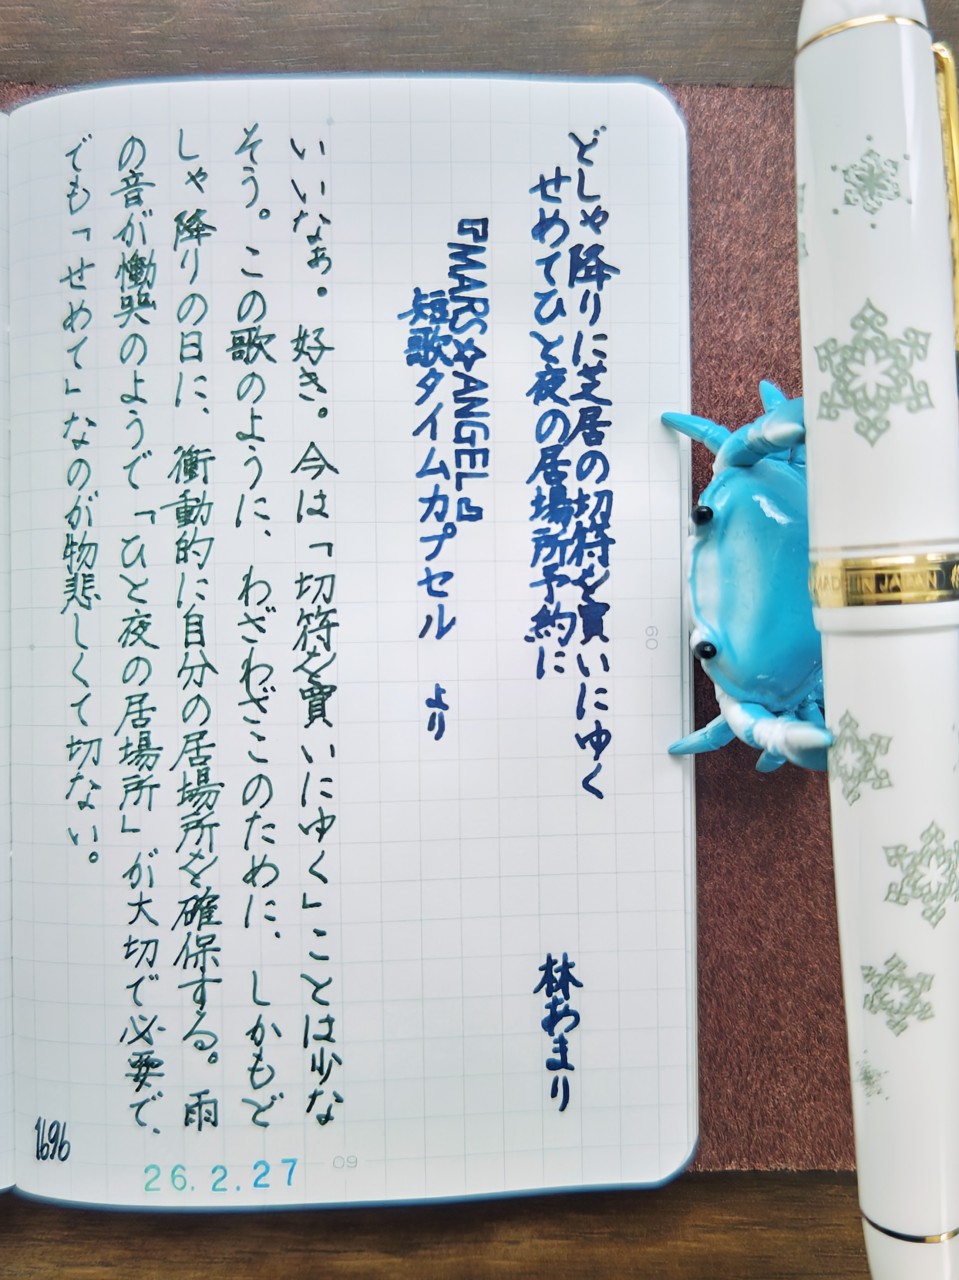 どしゃ降りに芝居の切符を買いにゆく
せめてひと夜の居場所予約に
林あまり
『MARS☆ANGEL』
短歌タイムカプセル より
いいなぁ。好き。今は「切符を買いにゆく」ことは少な
そう。この歌のように、わざわざこのために、しかもど
しゃ降りの日に、衝動的に自分の居場所を確保する。雨
の音が慟哭のようで「ひと夜の居場所」が大切で必要で、
でも「せめて」なのが物悲しくて切ない。
1696
26.2.27
60
60
MADE IN JAPAN